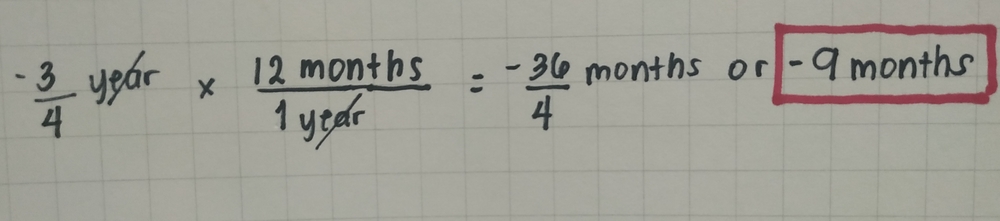 -3/4 year × 12 months/1 year = -36/4 months or -9 months